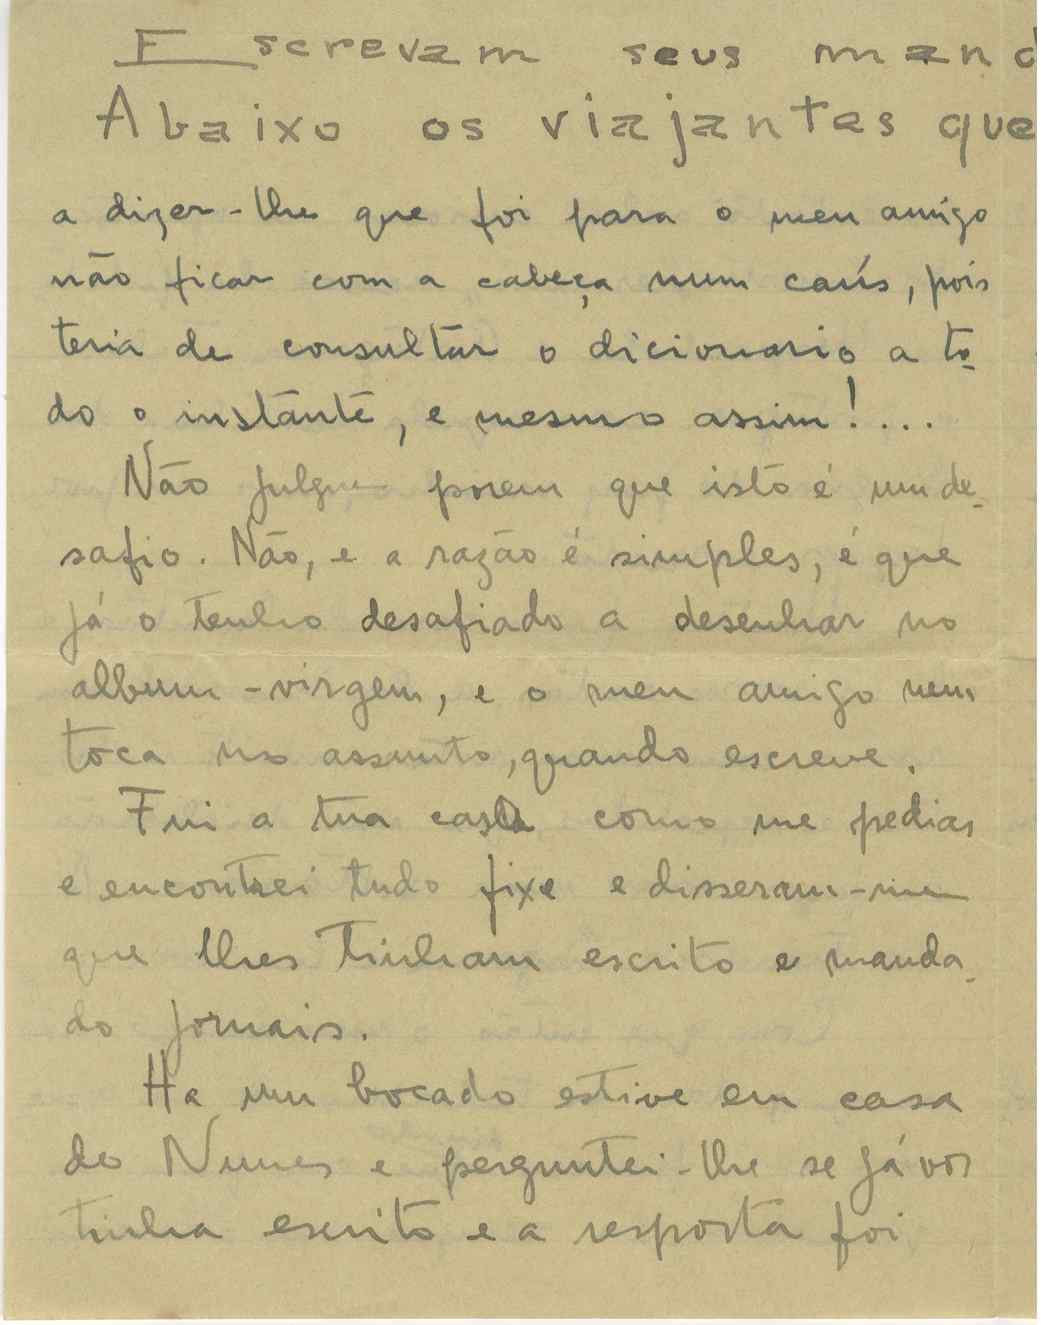 Escrevam seus mand
Abaixo os viajantes que
a dizer-lhe que foi para o meu amigo
não ficar com a cabeça num caús, pois
teria de consultar o dicionario a to-
do o instante, e mesmo assim!...
Não julgue porem que isto é um de-
safio. Não, e a razão é simples, é que
já o tenho desafiado a desenhar no
album-virgem, e o meu amigo nem
toca no assunto, quando escreve.
Fui a tua casa como me pedias
e encontrei tudo fixe e disseram-me
que lhes tinham escrito e manda-
do jornais.
Ha um bocado estive em casa
do Nunes e perguntei-lhe se já vos
tinha escrito e a resposta foi